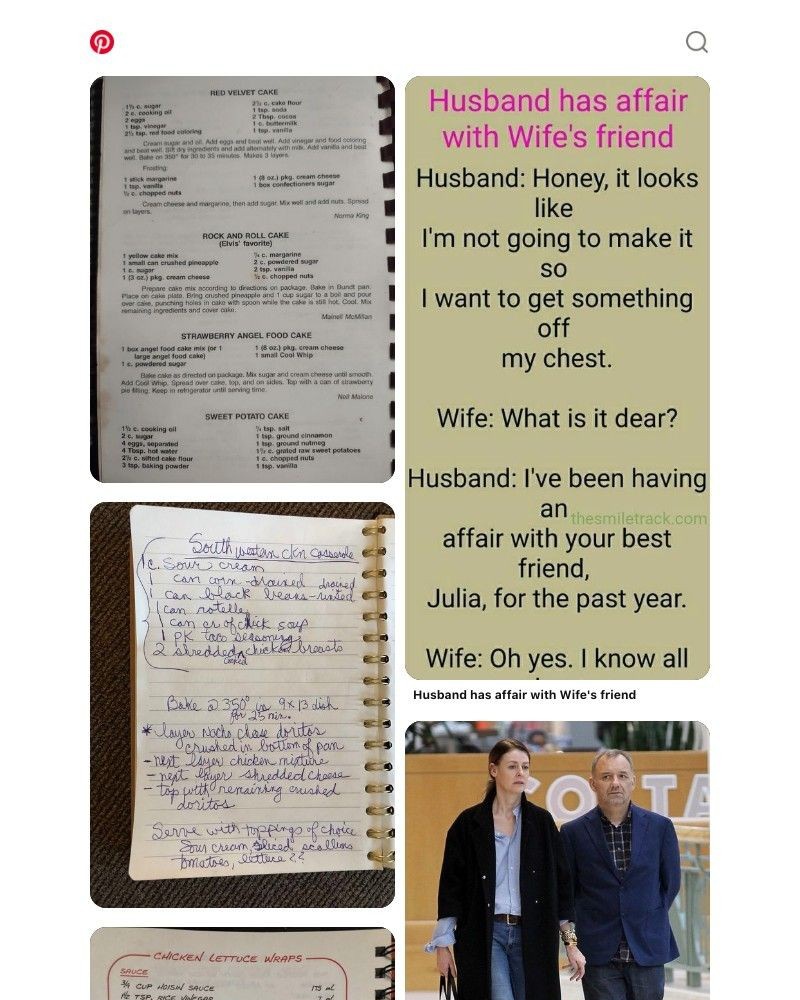 RED VELVET CAKE
1½ c. sugar
2 c. cooking oil
2 eggs
1 tsp. vinegar
2½ tsp. red food coloring
2½ c. cake flour
1 tsp. soda
2 Tbsp. cocoa
1 c. buttermilk
1 tsp. vanilla
Cream sugar and oil. Add eggs and beat well. Add vinegar and food coloring
and beat well. Sift dry ingredients and add alternately with milk. Add vanilla and beat
well. Bake on 350° for 30 to 35 minutes. Makes 3 layers.
Frosting:
1 stick margarine
1 tsp. vanilla
½ c. chopped nuts
1 (8 oz.) pkg. cream cheese
1 box confectioners sugar
Cream cheese and margarine, then add sugar. Mix well and add nuts. Spread
on layers.
Norma King
ROCK AND ROLL CAKE
(Elvis' favorite)
1 yellow cake mix
1 small can crushed pineapple
1 c. sugar
1 (3 oz.) pkg. cream cheese
¼ c. margarine
2 c. powdered sugar
2 tsp. vanilla
½ c. chopped nuts
Prepare cake mix according to directions on package. Bake in Bundt pan.
Place on cake plate. Bring crushed pineapple and 1 cup sugar to a boil and pour
over cake, punching holes in cake with spoon while the cake is still hot. Cool. Mix
remaining ingredients and cover cake.
Mainell McMillan
STRAWBERRY ANGEL FOOD CAKE
1 box angel food cake mix (or 1
large angel food cake)
1 c. powdered sugar
1 (8 oz.) pkg. cream cheese
1 small Cool Whip
Bake cake as directed on package. Mix sugar and cream cheese until smooth.
Add Cool Whip. Spread over cake, top, and on sides. Top with a can of strawberry
pie filling. Keep in refrigerator until serving time.
Nell Malone
SWEET POTATO CAKE
1½ c. cooking oil
2 c. sugar
4 eggs, separated
4 Tbsp. hot water
2½ c. sifted cake flour
3 tsp. baking powder
¼ tsp. salt
1 tsp. ground cinnamon
1 tsp. ground nutmeg
1½ c. grated raw sweet potatoes
1 c. chopped nuts
1 tsp. vanilla
Southwestern ckn casserole
1 c. Sour cream
1 can corn-drained
1 can black beans-rinsed
1 can rotelle
1 can cr of chick soup
1 PK taco seasoning
2 shredded chicken breasts
cooked
Bake @ 350° in 9x13 dish
for 25 min.
* layer nacho chese doritos
crushed in bottom of pan
- next layer chicken mixture
- next layer shredded cheese
- top with remaining crushed
doritos
Serve with toppings of choice
Sour cream, sliced scallions
tomatoes, lettuce ??
CHICKEN LETTUCE WRAPS
SAUCE
¾ CUP HOISIN SAUCE 175 mL
1½ TSP. RICE VINEGAR 7 mL
Husband has affair
with Wife's friend
Husband: Honey, it looks
like
I'm not going to make it
so
I want to get something
off
my chest.
Wife: What is it dear?
Husband: I've been having
an
thesmiletrack.com
affair with your best
friend,
Julia, for the past year.
Wife: Oh yes. I know all
Husband has affair with Wife's friend
COSTA